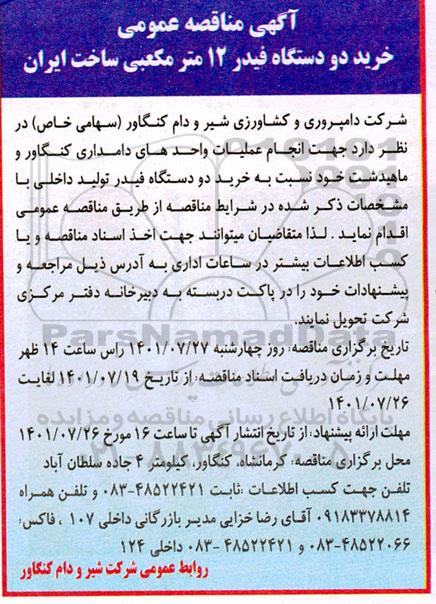 آگهی مناقصه عمومی
خرید دو دستگاه فیدر ۱۲ متر مکعبی ساخت ایران
شرکت دامپروری و کشاورزی شیر و دام کنگاور (سهامی خاص) در
نظر دارد جهت انجام عملیات واحد های دامداری کنگاور و
ماهیدشت خود نسبت به خرید دو دستگاه فیدر تولید داخلی با
مشخصات ذکر شده در شرایط مناقصه از طریق مناقصه عمومی
اقدام نماید . لذا متقاضیان میتوانند جهت اخذ اسناد مناقصه و یا
کسب اطلاعات بیشتر در ساعات اداری به آدرس ذیل مراجعه و
پیشنهادات خود را در پاکت دربسته به دبیرخانه دفتر مرکزی
شرکت تحویل نمایند.
تاریخ برگزاری مناقصه: روز چهارشنبه ۱۴۰۱/۰۷/۲۷ راس ساعت ۱۴ ظهر
مهلت و زمان دریافت اسناد مناقصه: از تاریخ ۱۴۰۱/۰۷/۱۹ لغایت
۱۴۰۱/۰۷/۲۶
مهلت ارائه پیشنهاد: از تاریخ انتشار آگهی تا ساعت ۱۶ مورخ ۱۴۰۱/۰۷/۲۶
محل برگزاری مناقصه: کرمانشاه، کنگاور، کیلومتر ۴ جاده سلطان آباد
تلفن جهت کسب اطلاعات :ثابت ۴۸۵۲۲۴۲۱-۰۸۳ و تلفن همراه
۰۹۱۸۳۳۷۸۸۱۴ آقای رضا خزایی مدیر بازرگانی داخلی ۱۰۷ ، فاکس:
۴۸۵۲۲۰۶۶-۰۸۳ و ۴۸۵۲۲۴۲۱ -۰۸۳ داخلی ۱۲۴
روابط عمومی شرکت شیر و دام کنگاور
ParsNamadData
پایگاه اطلاع رسانی مناقصه و مزایده